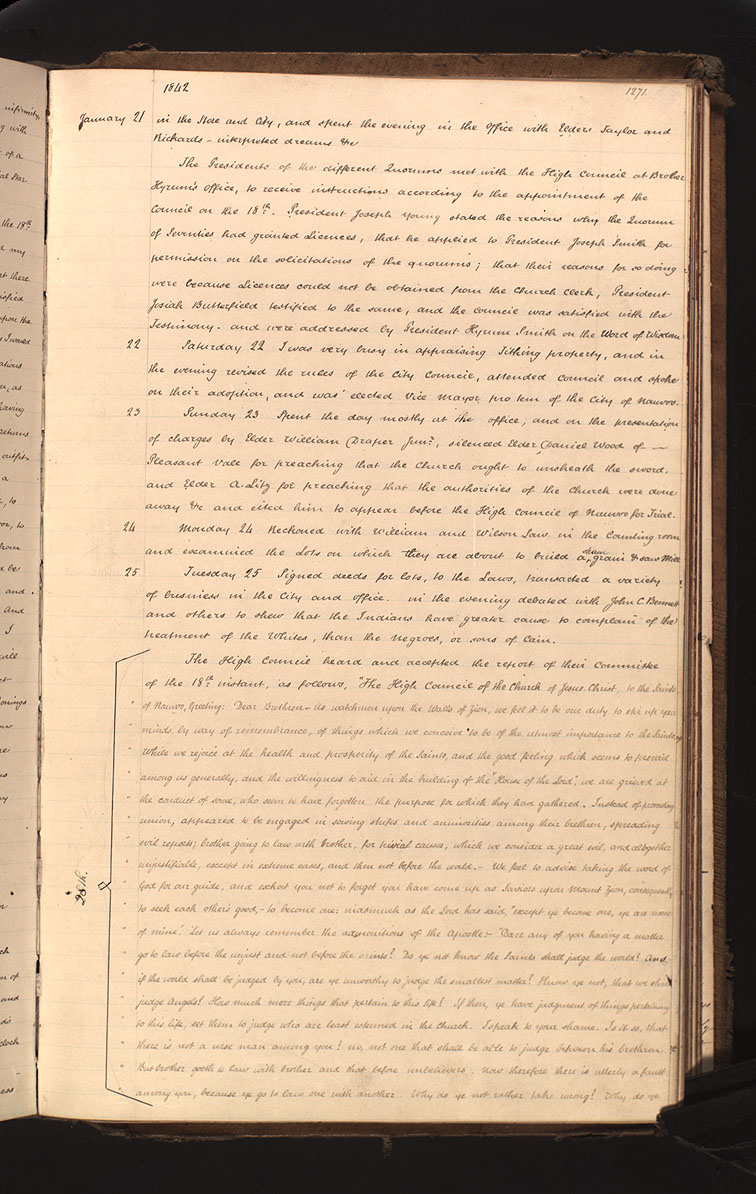 1842
1271.
January 21 in the Store and City, and spent the evening in the Office with Elders Taylor and
Richards - interpreted dreams &c
The Presidents of the different Quorums met with the High Council at Brother
Hyrum's office, to receive instructions according to the appointment of the
Council on the 18th. President Joseph Young stated the reasons why the Quorum
of Seventies had granted Licences, that he applied to President Joseph Smith for
permission on the solicitations of the quorums; that their reasons for so doing
were because Licences could not be obtained from the Church Clerk, President
Josiah Butterfield testified to the same, and the council was satisfied with the
Testimony. and were addressed by President Hyrum Smith on the Word of Wisdom
22 Saturday 22 I was very busy in appraising Tithing property, and in
the evening revised the rules of the City Council, attended Council and spoke
on their adoption, and was elected Vice Mayor, pro tem of the City of Nauvoo.
23 Sunday 23 Spent the day mostly at the office, and on the presentation
of charges by Elder William Draper Junr., silenced Elder Daniel Wood of —
Pleasant Vale for preaching that the Church ought to unsheath the sword.
and Elder A. Litz for preaching that the authorities of the Church were done
away &c and cited him to appear before the High Council of Nauvoo for Trial.
24 Monday 24 Reckoned with William and Wilson Law in the Counting room
and examined the Lots on which they are about to build a steam grain & saw Mill
25 Tuesday 25 Signed deeds for lots, to the Laws, transacted a variety
of business in the City and office. in the evening debated with John C. Bennett
and others to shew that the Indians have greater cause to complain of the
treatment of the Whites, than the negroes, or sons of Cain.
The High Council heard and accepted the report of their Committee
of the 18th instant, as follows, "The High Council of the Church of Jesus Christ, to the Saints
" of Nauvoo, Greeting: Dear Brethren - As watchmen upon the Walls of Zion, we feel it to be our duty to stir up your
" minds, by way of remembrance, of things which we conceive to be of the utmost importance to the Saints
" While we rejoice at the health and prosperity of the Saints, and the good feeling which seems to prevail
" among us generally, and the willingness to aid in the building of the "House of the Lord", we are grieved at
" the conduct of some, who seem to have forgotten the purpose for which they had gathered. Instead of promoting
" union, appeared to be engaged in sowing strifes and animosities among their brethren, spreading
" evil reports; brother going to law with brother, for trivial causes, which we consider a great evil, and altogether
" unjustifiable, except in extreme cases, and then not before the world. - We feel to advise taking the word of
" God for our guide, and exhort you not to forget you have come up as Saviors upon Mount Zion, consequently
28th.
" to seek each other's good, - to become one: inasmuch as the Lord has said, "except ye become one, ye are none
" of mine." Let us always remember the admonitions of the Apostle:- "Dare any of you having a matter
" go to law before the unjust and not before the saints? Do ye not know the Saints shall judge the world? And
" if the world shall be judged by you, are ye unworthy to judge the smallest matter? Know ye not, that we shall
" judge Angels? How much more things that pertain to this life? If then, ye have judgment of things pertaining
" to this life, set them to judge who are least esteemed in the Church. I speak to your shame. Is it so, that
" there is not a wise man among you? no, not one that shall be able to judge between his brethren.
" But brother goeth to law with brother and that before unbelievers. now therefore there is utterly a fault
" among you, because ye go to law one with another. Why do ye not rather take wrong? Why do ye